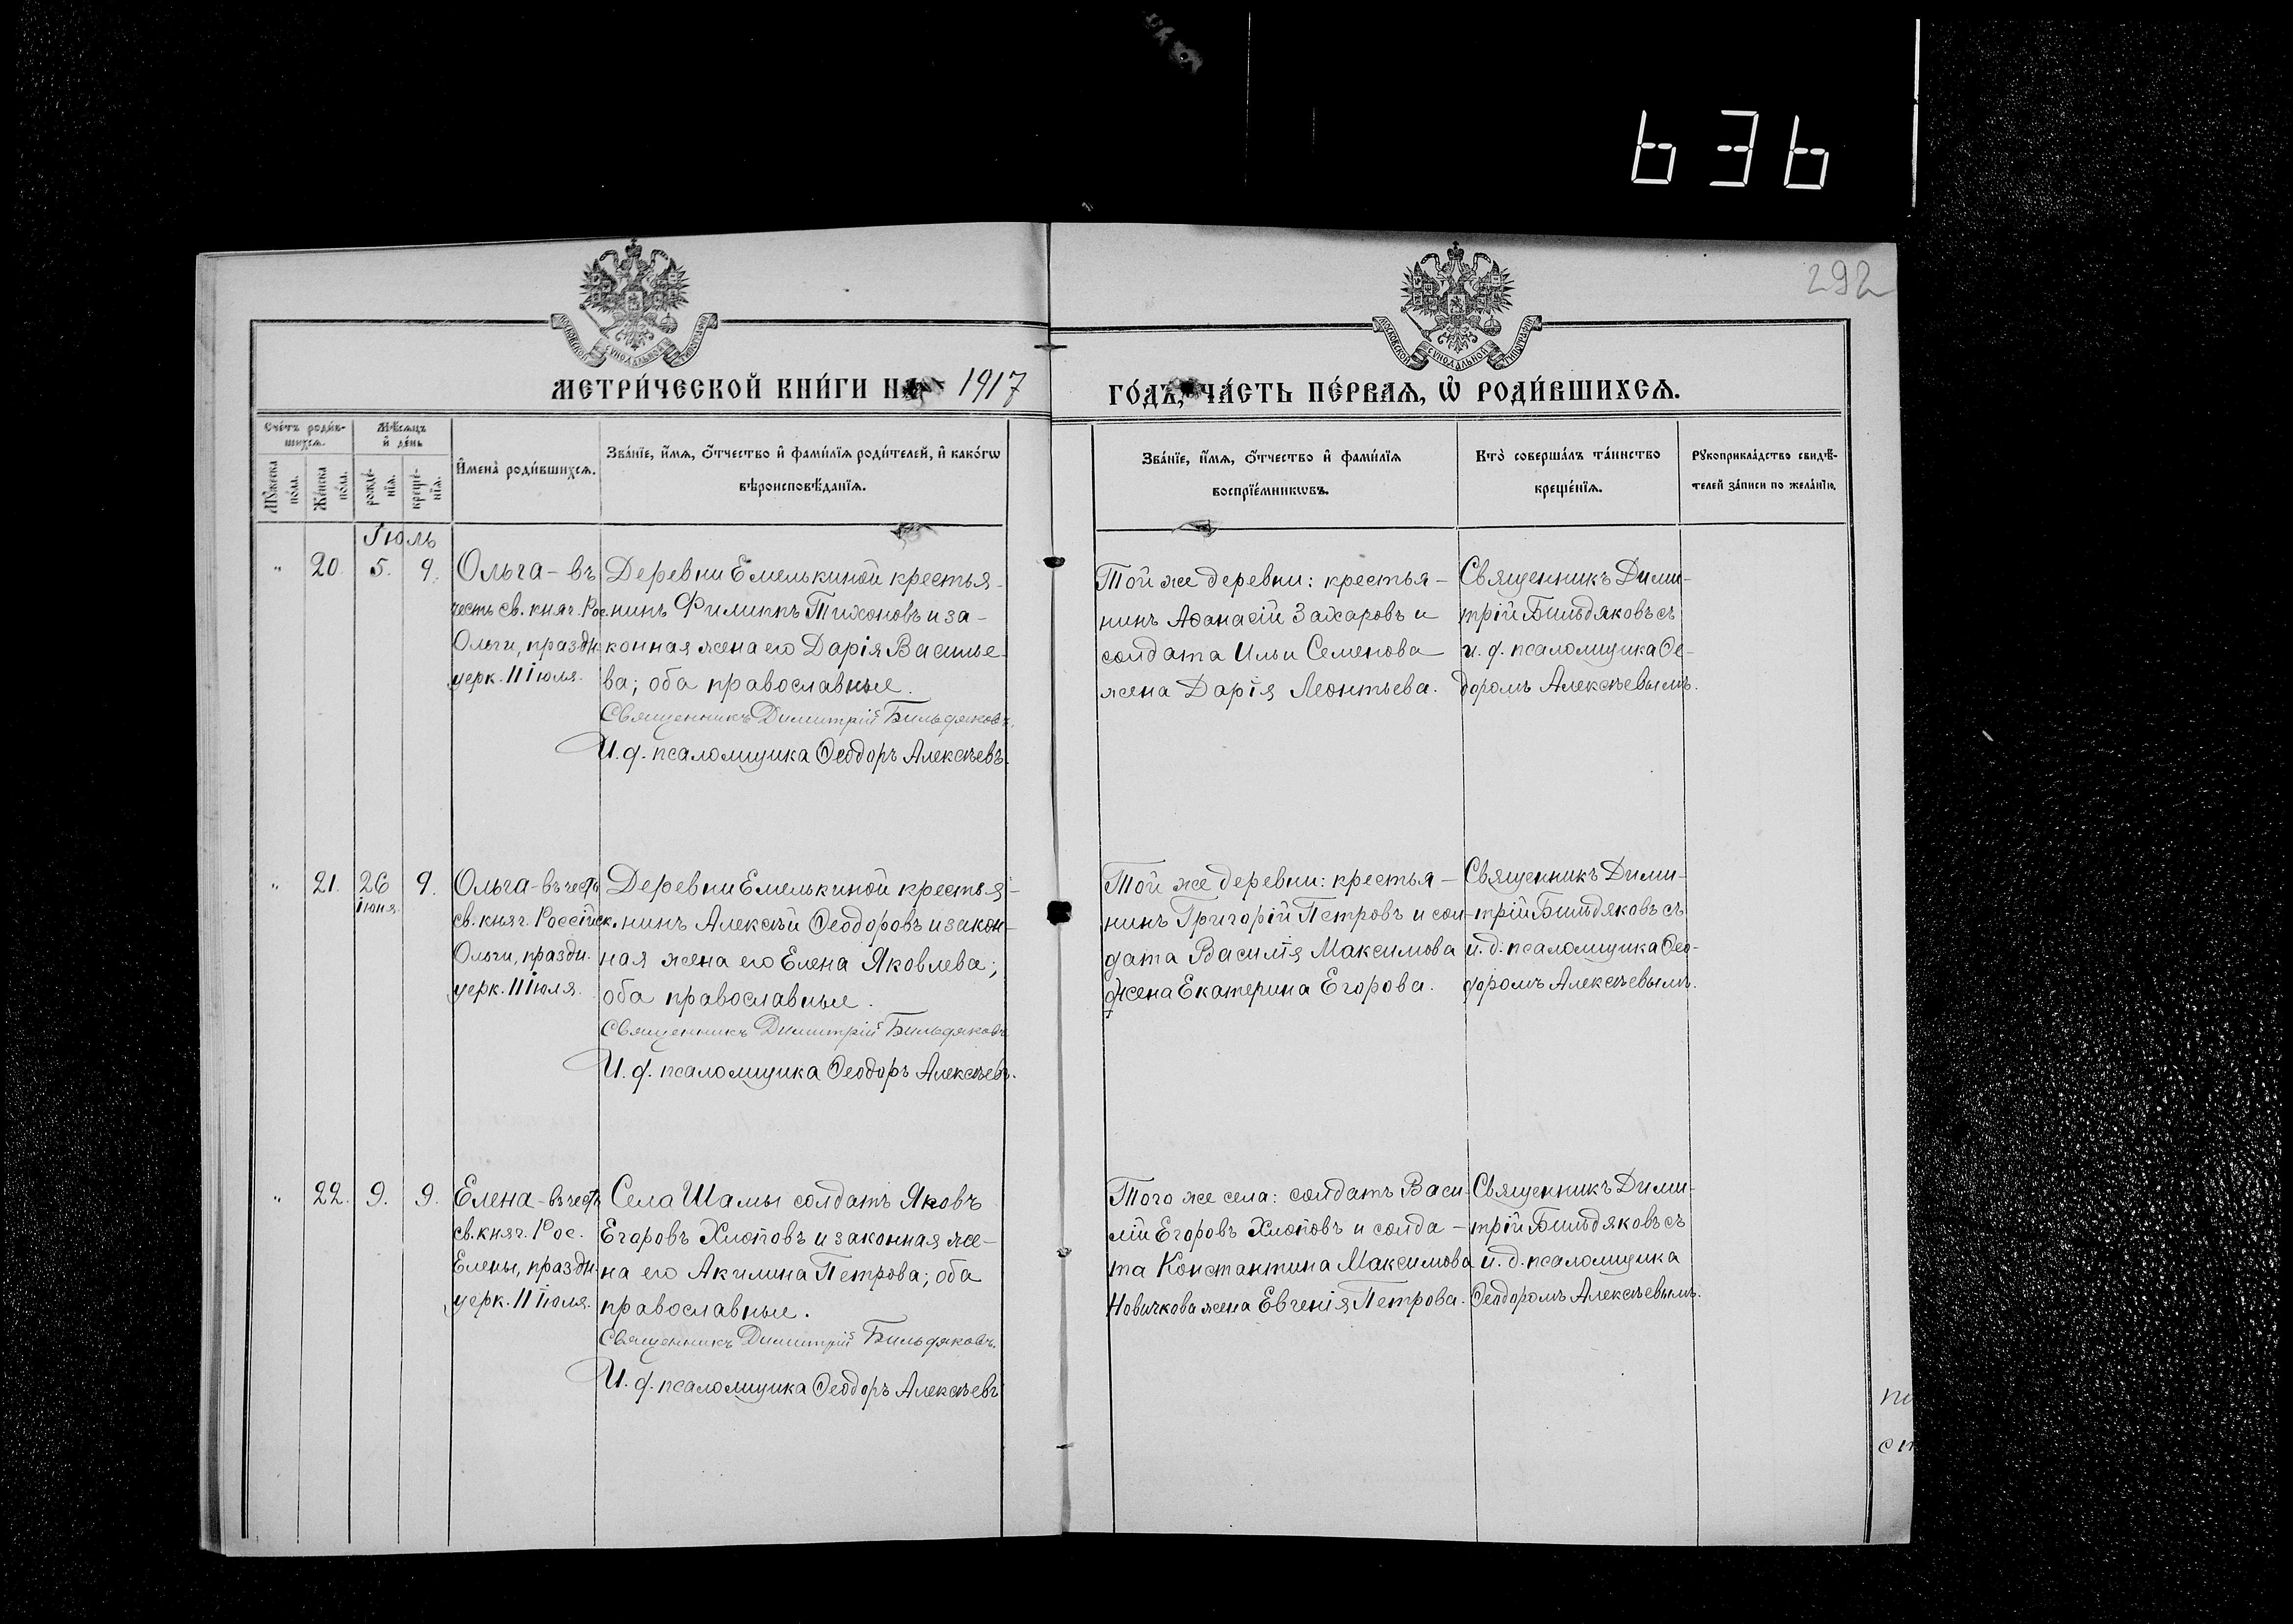 636
292
МОСКОВСКОЙ СѴНОДАЛЬНОЙ ТИПОГРАФІИ
МОСКОВСКОЙ СѴНОДАЛЬНОЙ ТИПОГРАФІИ
МЕТРИ́ЧЕСКОЙ КНИ́ГИ НА 1917
ГО́ДЪ, ЧА́СТЬ ПЕ́РВАЯ, Ѡ РОДИ́ВШИХСѦ.
Сче́тъ роди́в-
шихсѧ.
Мꙋ́жеска
по́ла.
Же́нска
по́ла.
Мѣ́сѧцъ
и де́нь
рожде́-
нїѧ.
креще́-
нїѧ.
Имена̀ роди́вшихсѧ.
Зва́нїе, и́мѧ, ѻ́тчество и фами́лїѧ роди́телей, и како́гѡ
вѣроисповѣ́данїѧ.
Зва́нїе, и́мѧ, ѻ́тчество и фами́лїѧ
воспрїе́мникѡвъ.
Кто̀ соверша́лъ та́инство
креще́нїѧ.
Рꙋкоприкла́дство свидѣ́-
телей за́писи по жела́нїю.
Іюль
" 20. 5. 9.
Ольга - въ
честь св. княг. Рос.
Ольги, праздн.
церк. 11 Іюля.
Деревни Емелькиной крестья-
нинъ Филиппъ Тихоновъ и за-
конная жена его Дарія Василье-
ва; оба православные.
Священникъ Димитрій Бильдяковъ.
И. д. псаломщика Ѳеодоръ Алексѣевъ.
Той же деревни: крестья-
нинъ Аѳанасій Захаровъ и
солдата Ильи Семенова
жена Дарія Леонтьева.
Священникъ Дими-
трій Бильдяковъ съ
и. д. псаломщика Ѳе-
доромъ Алексѣевымъ.
" 21. 26 Іюня. 9.
Ольга - въ честь
св. княг. Россійск.
Ольги, праздн.
церк. 11 Іюля.
Деревни Емелькиной крестья-
нинъ Алексѣй Ѳеодоровъ и закон-
ная жена его Елена Яковлева;
оба православные.
Священникъ Димитрій Бильдяковъ
И. д. псаломщика Ѳеодоръ Алексѣевъ.
Той же деревни: крестья-
нинъ Григорій Петровъ и сол-
дата Василія Максимова
жена Екатерина Егорова.
Священникъ Дими-
трій Бильдяковъ съ
и. д. псаломщика Ѳео-
доромъ Алексѣевымъ.
" 22. 9. 9.
Елена - въ честь
св. княг. Рос.
Елены, праздн.
церк. 11 Іюля.
Села Шамы солдатъ Яковъ
Егоровъ Хлоповъ и законная же-
на его Акилина Петрова; оба
православные.
Священникъ Димитрій Бильдяковъ.
И. д. псаломщика Ѳеодоръ Алексѣевъ
Того же села: солдатъ Васи-
лій Егоровъ Хлоповъ и солда-
та Константина Максимова
Новичкова жена Евгенія Петрова.
Священникъ Дими-
трій Бильдяковъ съ
и. д. псаломщика
Ѳеодоромъ Алексѣевымъ.